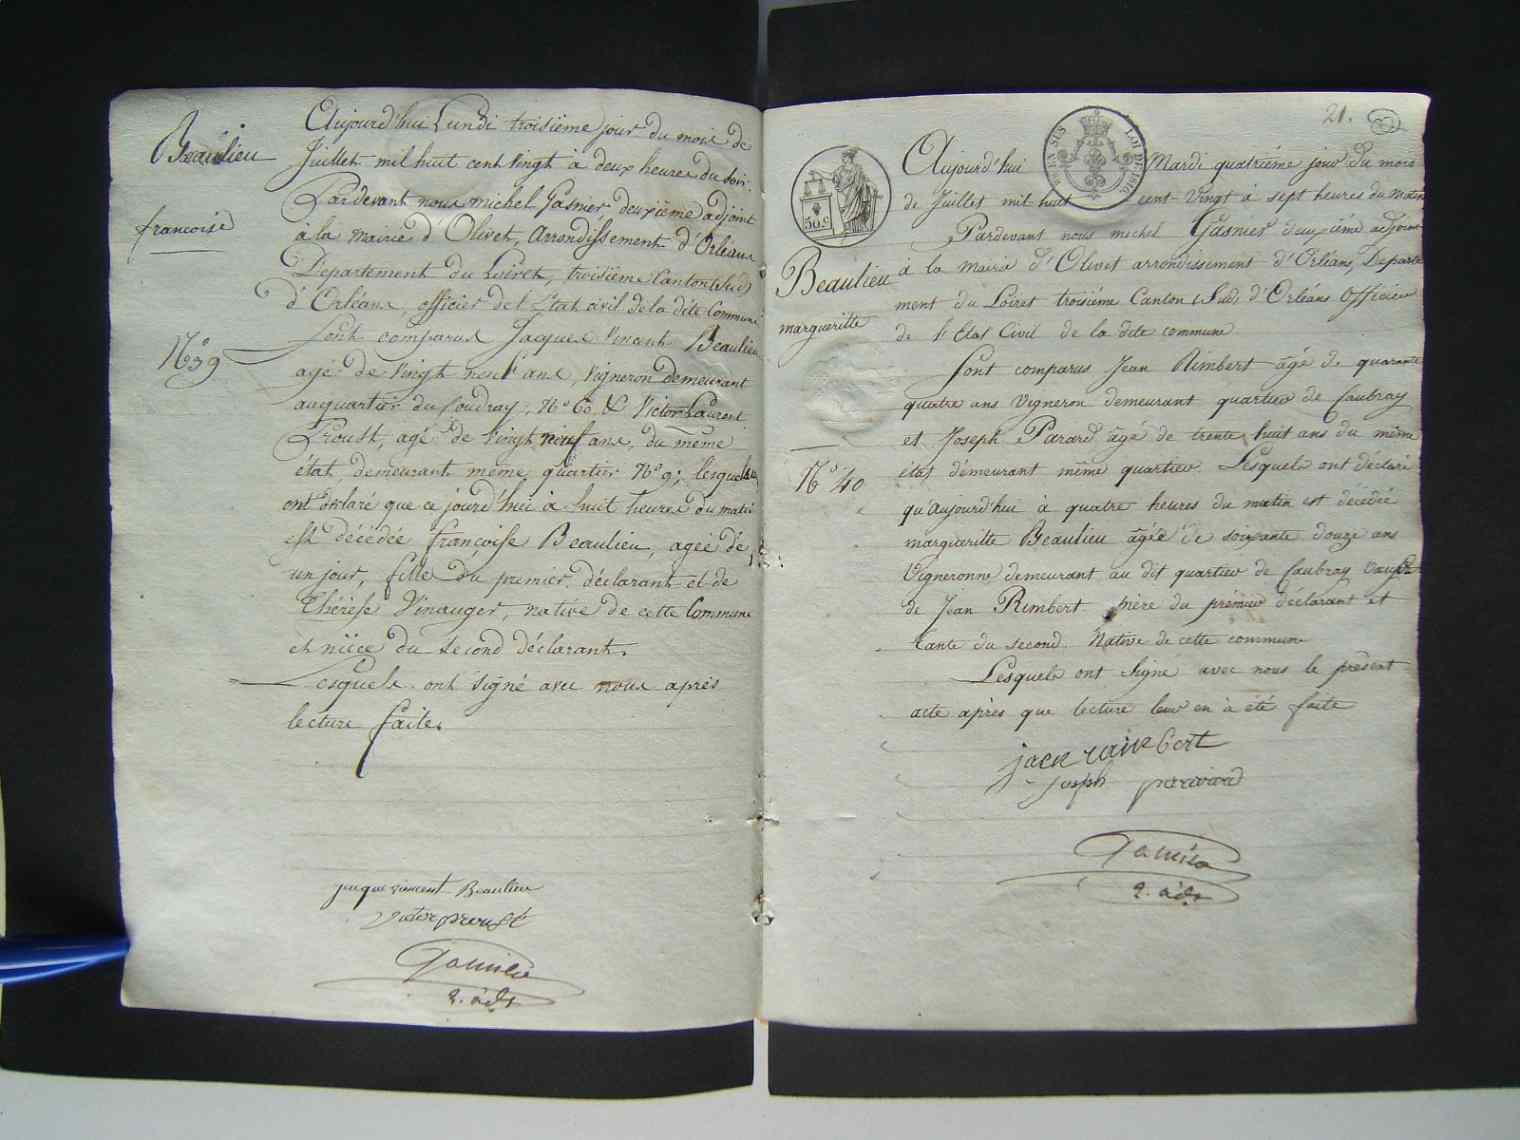 Beaulieu
francoise
N° 39
Aujourd'hui Lundi troisième jour du mois de
Juillet mil huit cent vingt à deux heures du soir.
Pardevant nous michel Gasnier, deuxième adjoint
à la Mairie d'Olivet, Arrondissement d'Orléans
Departement du Loiret, troisième Canton (Sud)
d'Orléans, officier de l'Etat civil de la dite Commune
Sont comparus Jacques Vincent Beaulieu
agé de vingt neuf ans, Vigneron demeurant
au quartier du Coudray, N° 60 & Victor Laurent
Proust, agé de vingt neuf ans, du même
état, demeurant même quartier N° 9; lesquels
ont déclaré que ce jourd'hui à huit heures du matin
est décédée françoise Beaulieu, agée de
un jour, fille du premier déclarant et de
Thérèse Vinauger, native de cette Commune
et nièce du second déclarant.
Lesquels ont signé avec nous après
lecture faite.
jacque vincent Beaulieu
victor proust
Gasnier
2. adj
21.
EN SUS
LOI DE 1816
50 c
Beaulieu
margueritte
N° 40
Aujourd'hui Mardi quatrième jour du mois
de Juillet mil huit cent vingt à sept heures du matin
Pardevant nous michel Gasnier deuxième adjoint
à la Mairie d'Olivet arrondissement d'Orléans, Departe
ment du Loiret troisième Canton (Sud) d'Orléans Officier
de l'Etat Civil de la dite commune
Sont comparus Jean Rimbert âgé de quarante
quatre ans Vigneron demeurant quartier de Caubray
et Joseph Parard âgé de trente huit ans du même
état demeurant même quartier. Lesquels ont déclaré
qu'aujourd'hui à quatre heures du matin est décédé
margueritte Beaulieu âgée de soixante douze ans
Vigneronne demeurant au dit quartier de Caubray veuve
de Jean Rimbert mère du premier déclarant et
tante du second. Native de cette commune
Lesquels ont signé avec nous le présent
acte après que lecture leur en à été faite
joseph
Gasnier
2. adj